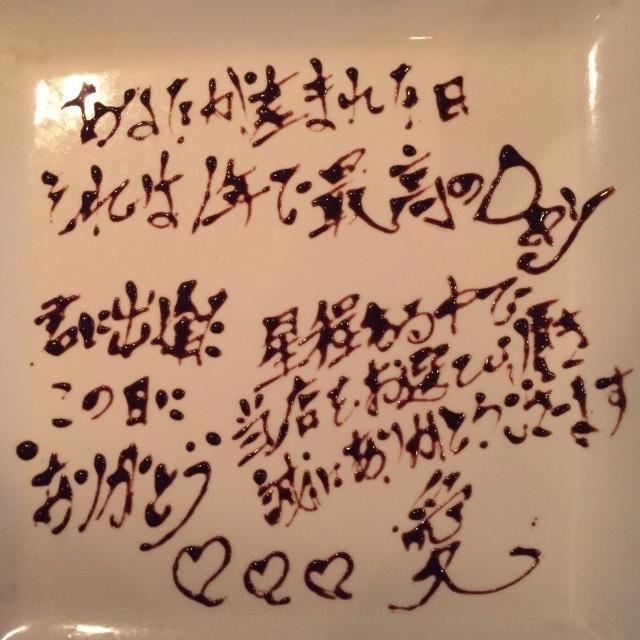 あなたが生まれた日
それは1年で最高のDay
君に出逢えた
この日に
ありがとう
星程ある中で
当店をお選び頂き
誠にありがとうございます